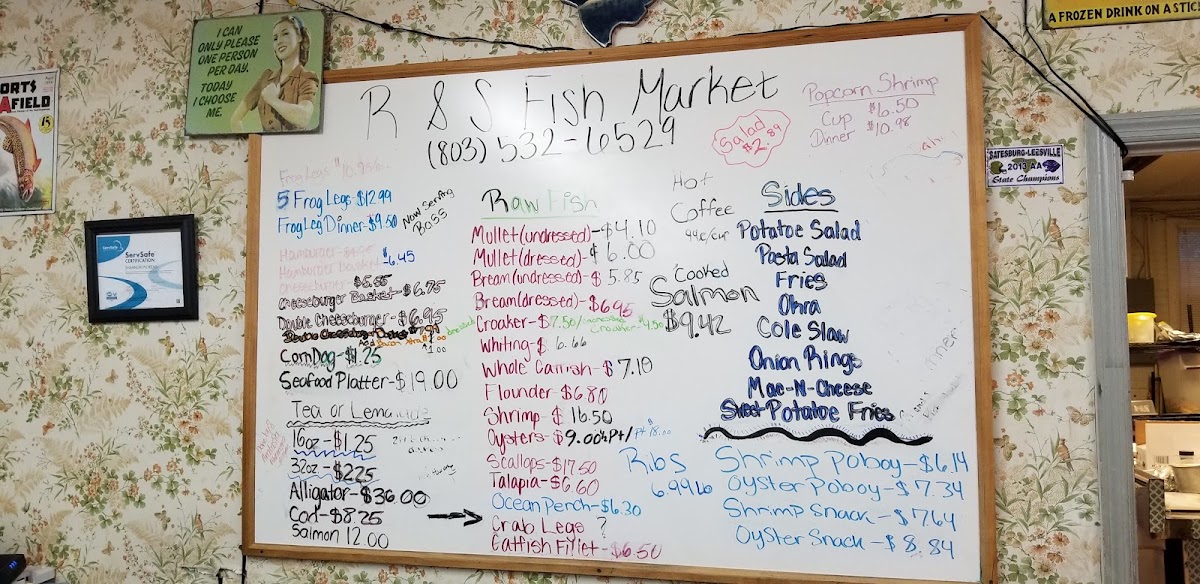 I CAN
ONLY PLEASE
ONE PERSON
PER DAY.
TODAY
I CHOOSE
ME.
A FROZEN DRINK ON A STIC
ORTS
AFIELD
15
ServSafe
CERTIFICATION
BATESBURG-LEESVILLE
2013 AA
State Champions
R & S Fish Market
(803) 532-6529
Salad
$2.89
Popcorn Shrimp
Cup $6.50
Dinner $10.98
Frog Legs
5 Frog Legs $12.99
Frog Leg Dinner-$9.50
Now Serving
Bass
Hamburger
Hamburger Basket $6.45
Cheeseburger-$5.55
Cheeseburger Basket-$6.75
Double Cheeseburger-$6.95
Add Bacon
Corn Dog-$1.25
Seafood Platter-$19.00
Tea or Lemonade
16oz-$1.25
32oz-$2.25
Alligator-$36.00
Cod-$8.25
Salmon 12.00
Raw Fish
Mullet(undressed)-$4.10
Mullet(dressed)-$6.00
Bream(undressed)-$5.85
Bream(dressed)-$6.95
Croaker-$7.50/
Croaker-$4.50
Whiting-$6.66
Whole Catfish-$7.10
Flounder-$6.80
Shrimp-$16.50
Oysters-$9.00½Pt/Pt 18.00
Scallops-$17.50
Talapia-$6.60
Ocean Perch-$6.30
Crab Legs ?
Catfish Fillet-$6.50
Hot
Coffee
94¢/cup
Cooked
Salmon
$9.42
Ribs
6.99 lb
Sides
Potatoe Salad
Pasta Salad
Fries
Okra
Cole Slaw
Onion Rings
Mac-N-Cheese
Sweet Potatoe Fries
Shrimp Poboy-$6.14
Oyster Poboy-$7.34
Shrimp Snack-$7.64
Oyster Snack-$8.84